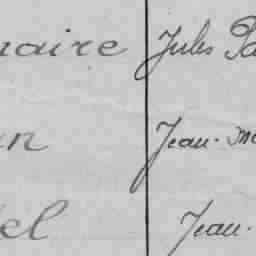 naire Jules Pa
an Jean-Ma
el Jean-